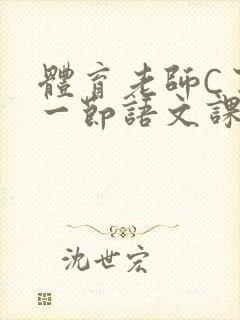 體育老師C
一節語文課
沈世宏